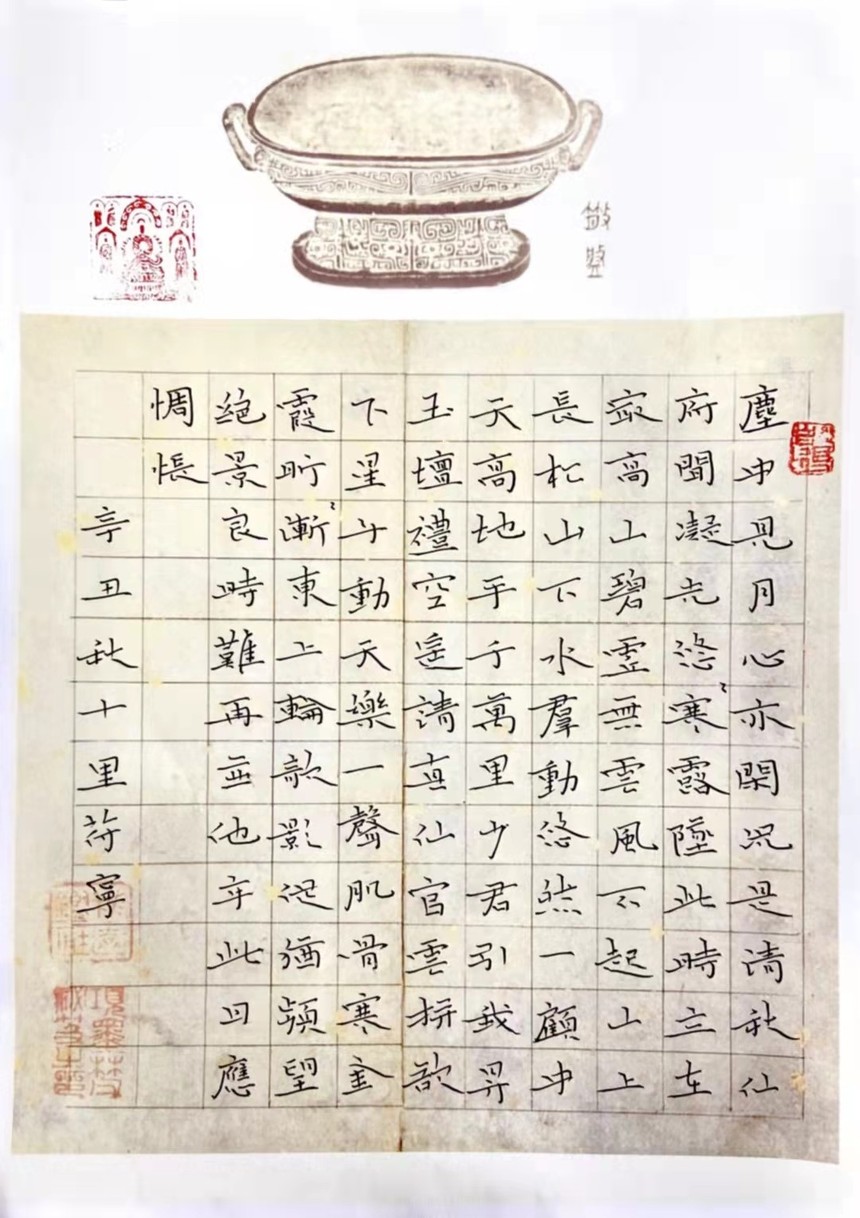 塵中見月心亦閑況是清秋仙
府間凝光悠々寒露墜此時立在
最高山碧虛無雲風不起山上
長松山下水羣動悠然一顧中
天高地平千萬里少君引我昇
玉壇禮空遙請真仙官雲軿欲
下星斗動天樂一聲肌骨寒金
霞昕々漸東上輪欹影促猶頻望
絕景良時難再並他年此日應
惆悵
辛丑秋十里荷寧